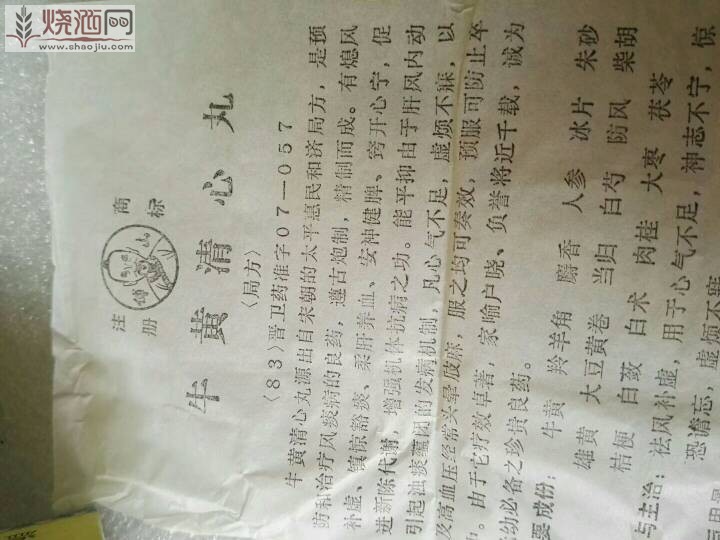 烧酒网
www.shaojiu.com
注册
商标
牛黄清心丸
〈局方〉
(83)晋卫药准字07—057
牛黄清心丸源出自宋朝的太平惠民和济局方，是预
防和治疗风痰病的良药，遵古炮制，精制而成。有熄风
补虚、镇惊豁痰、柔肝养血、安神健脾、窍开心宁，促
进新陈代谢，增强机体抗病之功。能平抑由于肝风内动
引起浊痰蕴闭的发病机制，凡心气不足，虚烦不寐，以
及高血压经常头晕肢麻，服之均可奏效，预服可防止卒
。由于它疗效卓著，家喻户晓、负誉将近千载，诚为
幼必备之珍贵良药。
要成份： 牛黄 羚羊角 麝香 人参 冰片 朱砂
雄黄 大豆黄卷 当归 白芍 防风 柴胡
桔梗 白蔹 白术 肉桂 大枣 茯苓
与主治：祛风补虚，用于心气不足，神志不宁，惊
恐谵忘，虚烦不寐